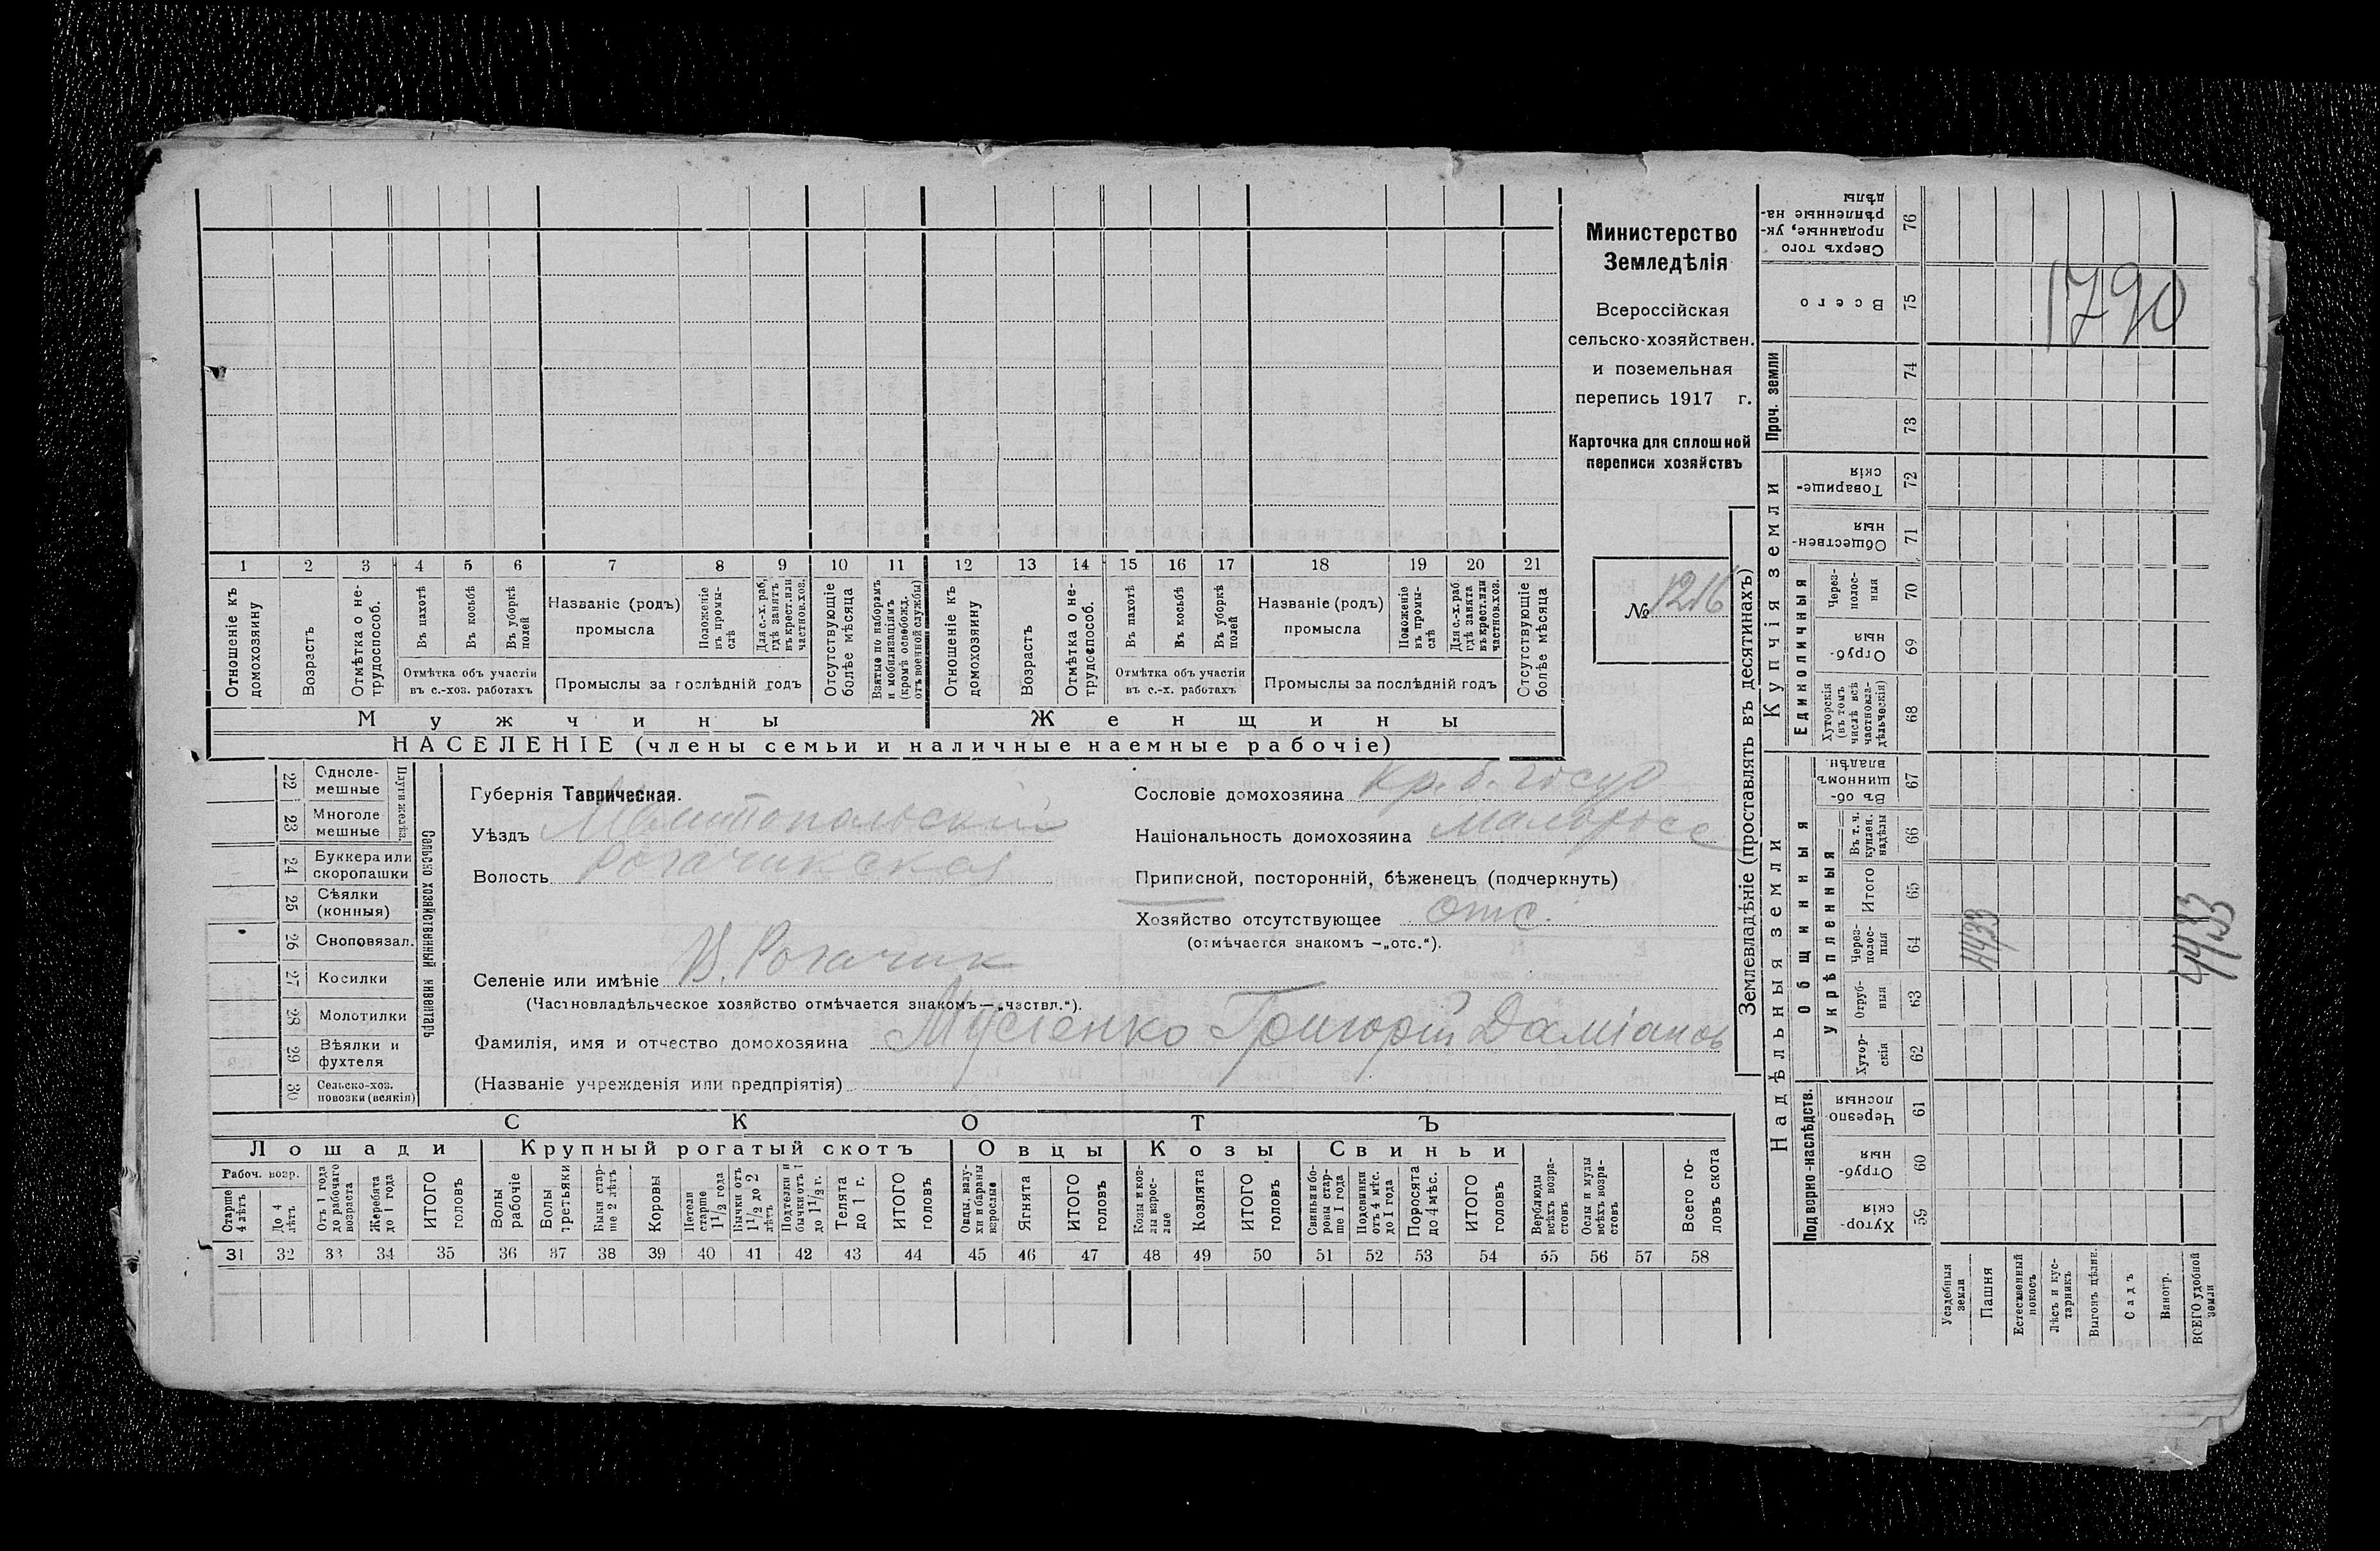 1 2 3 4 5 6 7 8 9 10 11 12 13 14 15 16 17 18 19 20 21
Отношеніе къ домохозяину
Возрастъ
Отмѣтка о не-трудоспособ.
Въ пахотѣ
Въ косьбѣ
Въ уборкѣ полей
Отмѣтка объ участіи
въ с.-хоз. работахъ
Названіе (родъ)
промысла
Положеніе въ промы-слѣ
Для с.-х. раб. гдѣ занятъ въ крест. или частнов. хоз.
Промыслы за послѣдній годъ
Отсутствующіе болѣе мѣсяца
Взятые по наборамъ и мобилизаціямъ (кромѣ освобожд. отъ военной службы)
Отношеніе къ домохозяину
Возрастъ
Отмѣтка о не-трудоспособ.
Въ пахотѣ
Въ косьбѣ
Въ уборкѣ полей
Отмѣтка объ участіи
въ с.-х. работахъ
Названіе (родъ)
промысла
Положеніе въ промы-слѣ
Для с.-х. раб. гдѣ занята въ крест. или частнов. хоз.
Промыслы за послѣдній годъ
Отсутствующіе болѣе мѣсяца
Мужчины
Женщины
НАСЕЛЕНІЕ (члены семьи и наличные наемные рабочіе)
Министерство
Земледѣлія
Всероссійская
сельско-хозяйствен.
и поземельная
перепись 1917 г.
Карточка для сплошной
переписи хозяйствъ
№ 1216
22 Одноле-мешные
23 Многоле мешные
Плуги желѣз.
24 Буккера или скоропашки
25 Сѣялки (конныя)
26 Сноповязал.
27 Косилки
28 Молотилки
29 Вѣялки и фухтеля
30 Сельско-хоз. повозки (всякія)
Сельско хозяйственный инвентарь
Губернія Таврическая.
Уѣздъ Мелитопольскій
Волость Рогачикская
Селеніе или имѣніе В. Рогачик
(Частновладѣльческое хозяйство отмѣчается знакомъ—„частвл.“).
Фамилія, имя и отчество домохозяина Мусіенко Григорій Даміанов
(Названіе учрежденія или предпріятія)
Сословіе домохозяина Кр. б. госуд
Національность домохозяина малоросс
Приписной, посторонній, бѣженецъ (подчеркнуть)
Хозяйство отсутствующее отс.
(отмѣчается знакомъ —„отс.“).
СКОТЪ
Лошади
Крупный рогатый скотъ
Овцы
Козы
Свиньи
Рабоч. возр.
Старше 4 лѣтъ
До 4 лѣтъ
Отъ 1 года до рабочаго возраста
Жеребята до 1 года
ИТОГО головъ
Волы рабочіе
Волы третьяки
Быки стар-ше 2 лѣтъ
Коровы
Нетели старше 1 1/2 года
Бычки отъ 1 1/2 до 2 лѣтъ
Подтелки и бычки отъ 1 до 1 1/2 г.
Телята до 1 г.
ИТОГО головъ
Овцы, валу-хи и бараны взрослые
Ягнята
ИТОГО головъ
Козы и коз-лы взрос-лые
Козлята
ИТОГО головъ
Свиньи и бо-ровы стар-ше 1 года
Подсвинки отъ 4 мѣс. до 1 года
Поросята до 4 мѣс.
ИТОГО головъ
Верблюды всѣхъ возра-стовъ
Ослы и мулы всѣхъ возра-стовъ
Всего го-ловъ скота
31 32 33 34 35 36 37 38 39 40 41 42 43 44 45 46 47 48 49 50 51 52 53 54 55 56 57 58
Землевладѣніе (проставлять въ десятинахъ)
Купчія земли
Надѣльныя земли
Проч. земли
Единоличныя
Общинныя
Укрѣпленныя
Подворно-наслѣдств.
Сверхъ того проданные, ук-рѣпленные на-дѣлы 76
Всего 75
74
73
Товарище-скія 72
Обществен-ныя 71
Через-полос-ныя 70
Отруб-ныя 69
Хуторскія (въ томъ числѣ всѣ частновла-дѣльческія) 68
Въ об-щинномъ владѣн. 67
Въ т. ч. куплен. надѣлы 66
Итого 65
Через-полос-ныя 64
Отруб-ныя 63
Хутор-скія 62
Черезпо лосныя 61
Отруб-ныя 60
Хутор-скія 59
Усадебныя земли
Пашня
Естественный покосъ
Лѣсъ и кус-тарникъ
Выгонъ цѣлин.
Садъ
Виногр.
ВСЕГО удобной земли
1790
4433
4433